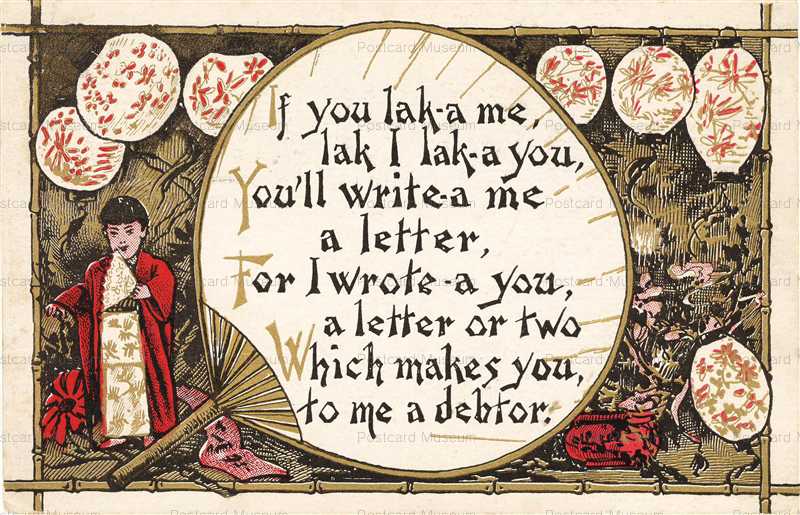 If you lak-a me,
lak I lak-a you,
You'll write-a me
a letter,
For I wrote-a you,
a letter or two
Which makes you,
to me a debtor.
Postcard Museum